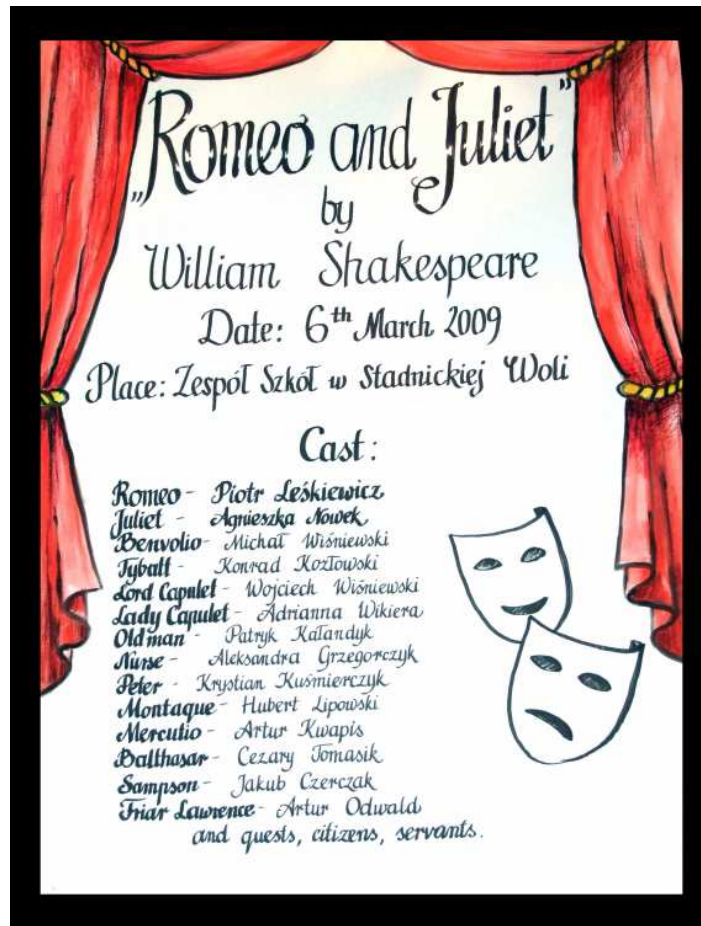 „Romeo and Juliet"
by
William Shakespeare
Date: 6th March 2009
Place: Zespół Szkół w Stadnickiej Woli
Cast:
Romeo - Piotr Leśkiewicz
Juliet - Agnieszka Nowek
Benvolio - Michał Wiśniewski
Tybalt - Konrad Kozłowski
Lord Capulet - Wojciech Wiśniewski
Lady Capulet - Adrianna Wikiera
Old man - Patryk Kałandyk
Nurse - Aleksandra Grzegorczyk
Peter - Krystian Kuśmierczyk
Montaque - Hubert Lipowski
Mercutio - Artur Kwapis
Balthasar - Cezary Tomasik
Sampson - Jakub Czerczak
Friar Lawrence - Artur Odwald
and quests, citizens, servants.